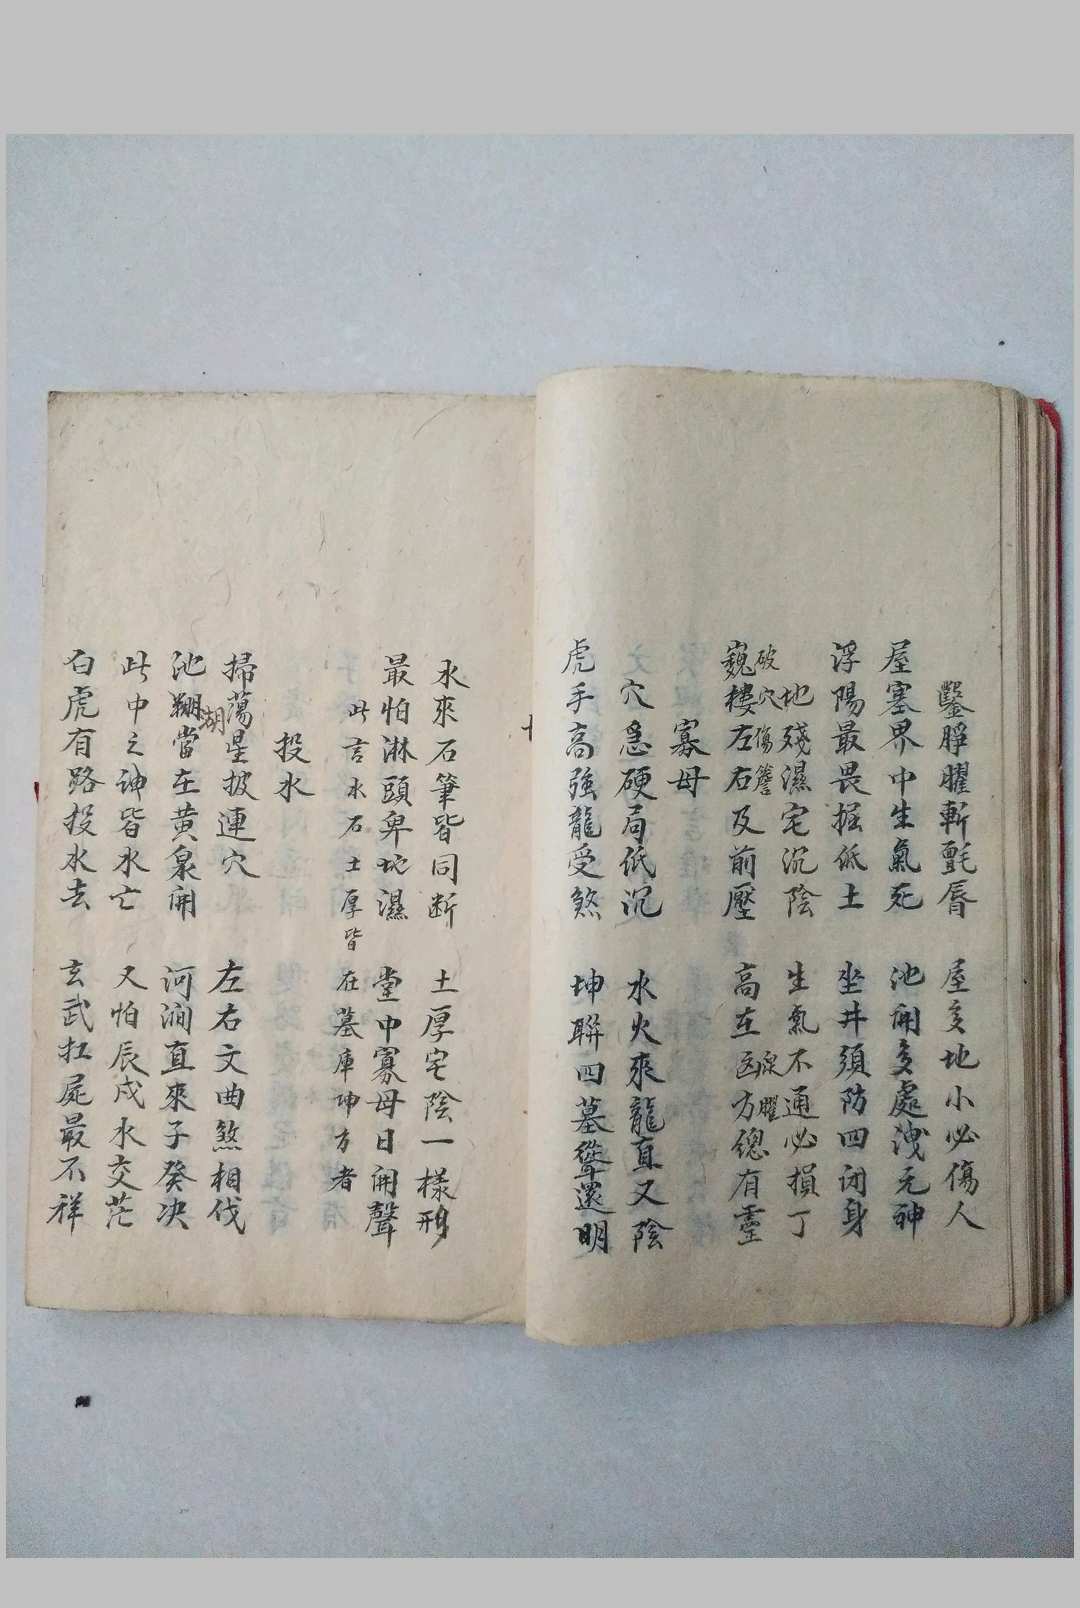 鑿脖臞斬氈唇　屋多地小必傷人
屋塞界中生氣死　池開多處洩元神
浮陽最畏掘低土　坐井須防四闭身
地殘濕宅沉陰　生氣不通必損丁
破穴傷簷　臞
巍樓左右及前壓　高在凶方總有靈
寡母
穴急硬局低沉　水火來龍直又陰
虎手高強龍受煞　坤聯四墓聳還明
水來石筆皆同断　土厚宅陰一樣形
最怕淋頭卑地濕　堂中寡母日開聲
此言水石土厚皆在墓庫坤方者
投水
掃蕩星披連穴　左右文曲煞相伐
湖
池塘當在黄泉開　河澗直來子癸决
此中之神皆水亡　又怕辰戌水交茫
白虎有路投水去　玄武扛屍最不祥